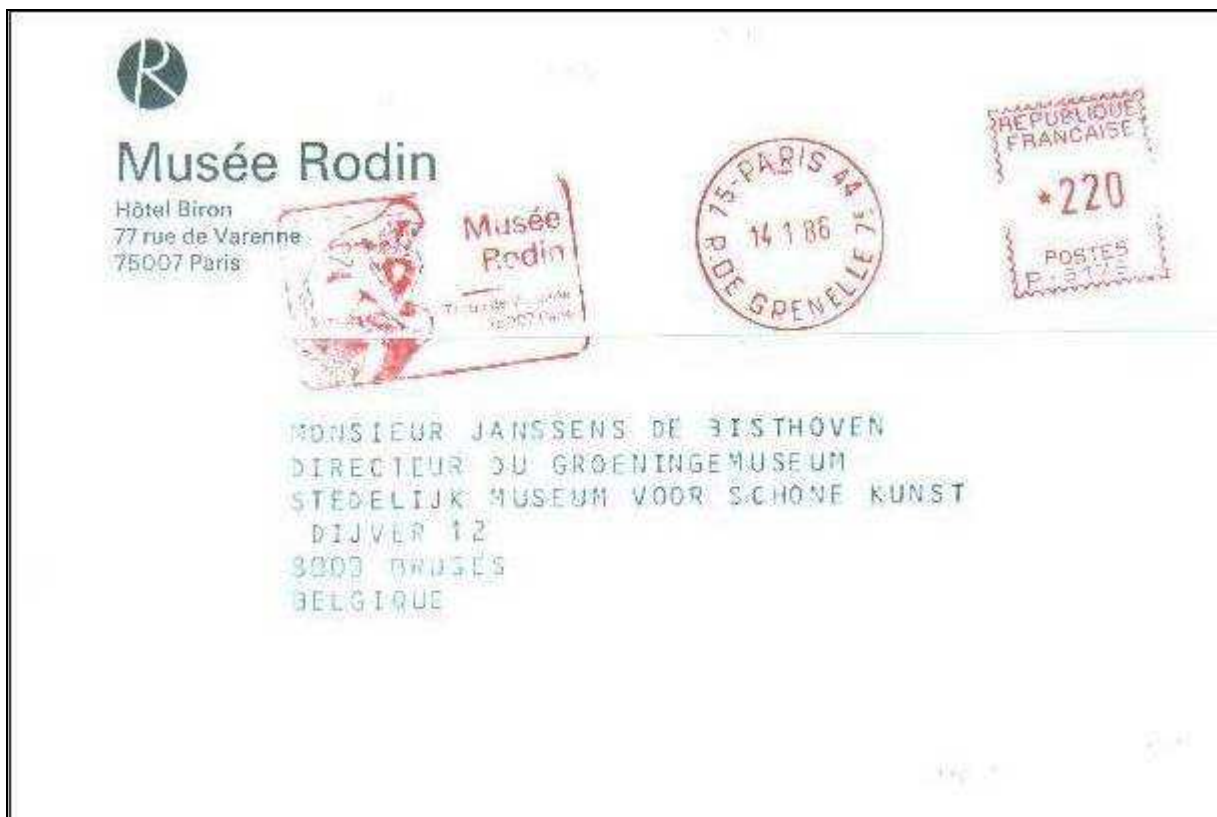 R
Musée Rodin
Hôtel Biron
77 rue de Varenne
75007 Paris
Musée
Rodin
75007 Paris
75-PARIS 44
R.DE GRENELLE 7e
14 1 86
REPUBLIQUE
FRANCAISE
*220
POSTES
MONSIEUR JANSSENS DE BISTHOVEN
DIRECTEUR DU GROENINGEMUSEUM
STEDELIJK MUSEUM VOOR SCHONE KUNST
DIJVER 12
BRUGES
BELGIQUE